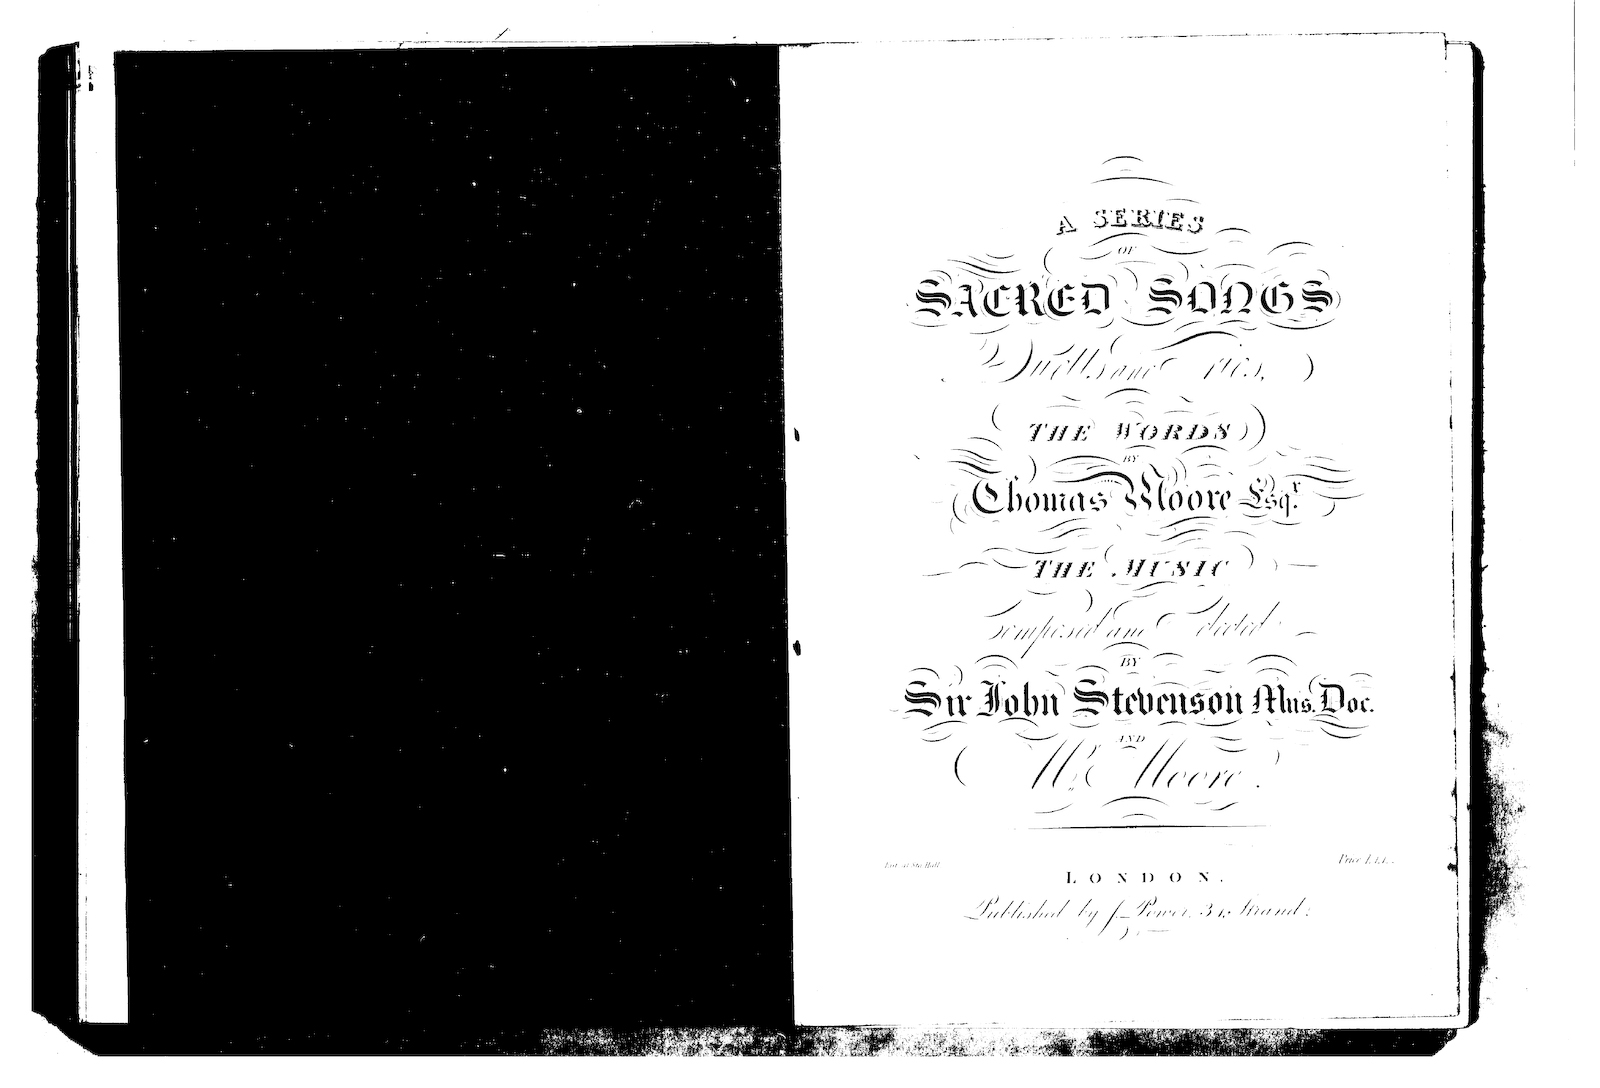 A SERIES
OF
SACRED SONGS
Duetts and Trios,
THE WORDS
BY
Thomas Moore Esqr.
THE MUSIC
Composed and Selected
BY
Sir John Stevenson Mus. Doc.
AND
Mr. Moore.
Ent. at Sta. Hall
Price
LONDON.
Published by J. Power, 34, Strand.